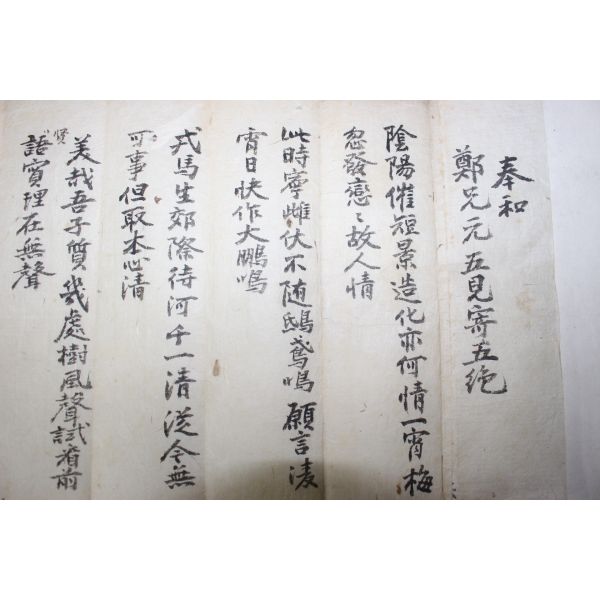 奉和
鄭兄元五見寄五絶
陰陽催短景造化亦何情一宵梅
忽發戀〻故人情
此時寧雌伏不随鴟鳶鳴願言凌
宵日快作大鵬鳴
戎馬生郊際待河千一清從今無
可事但取本心清
美哉吾子質幾處樹風聲試看前
賢
語實理在無聲